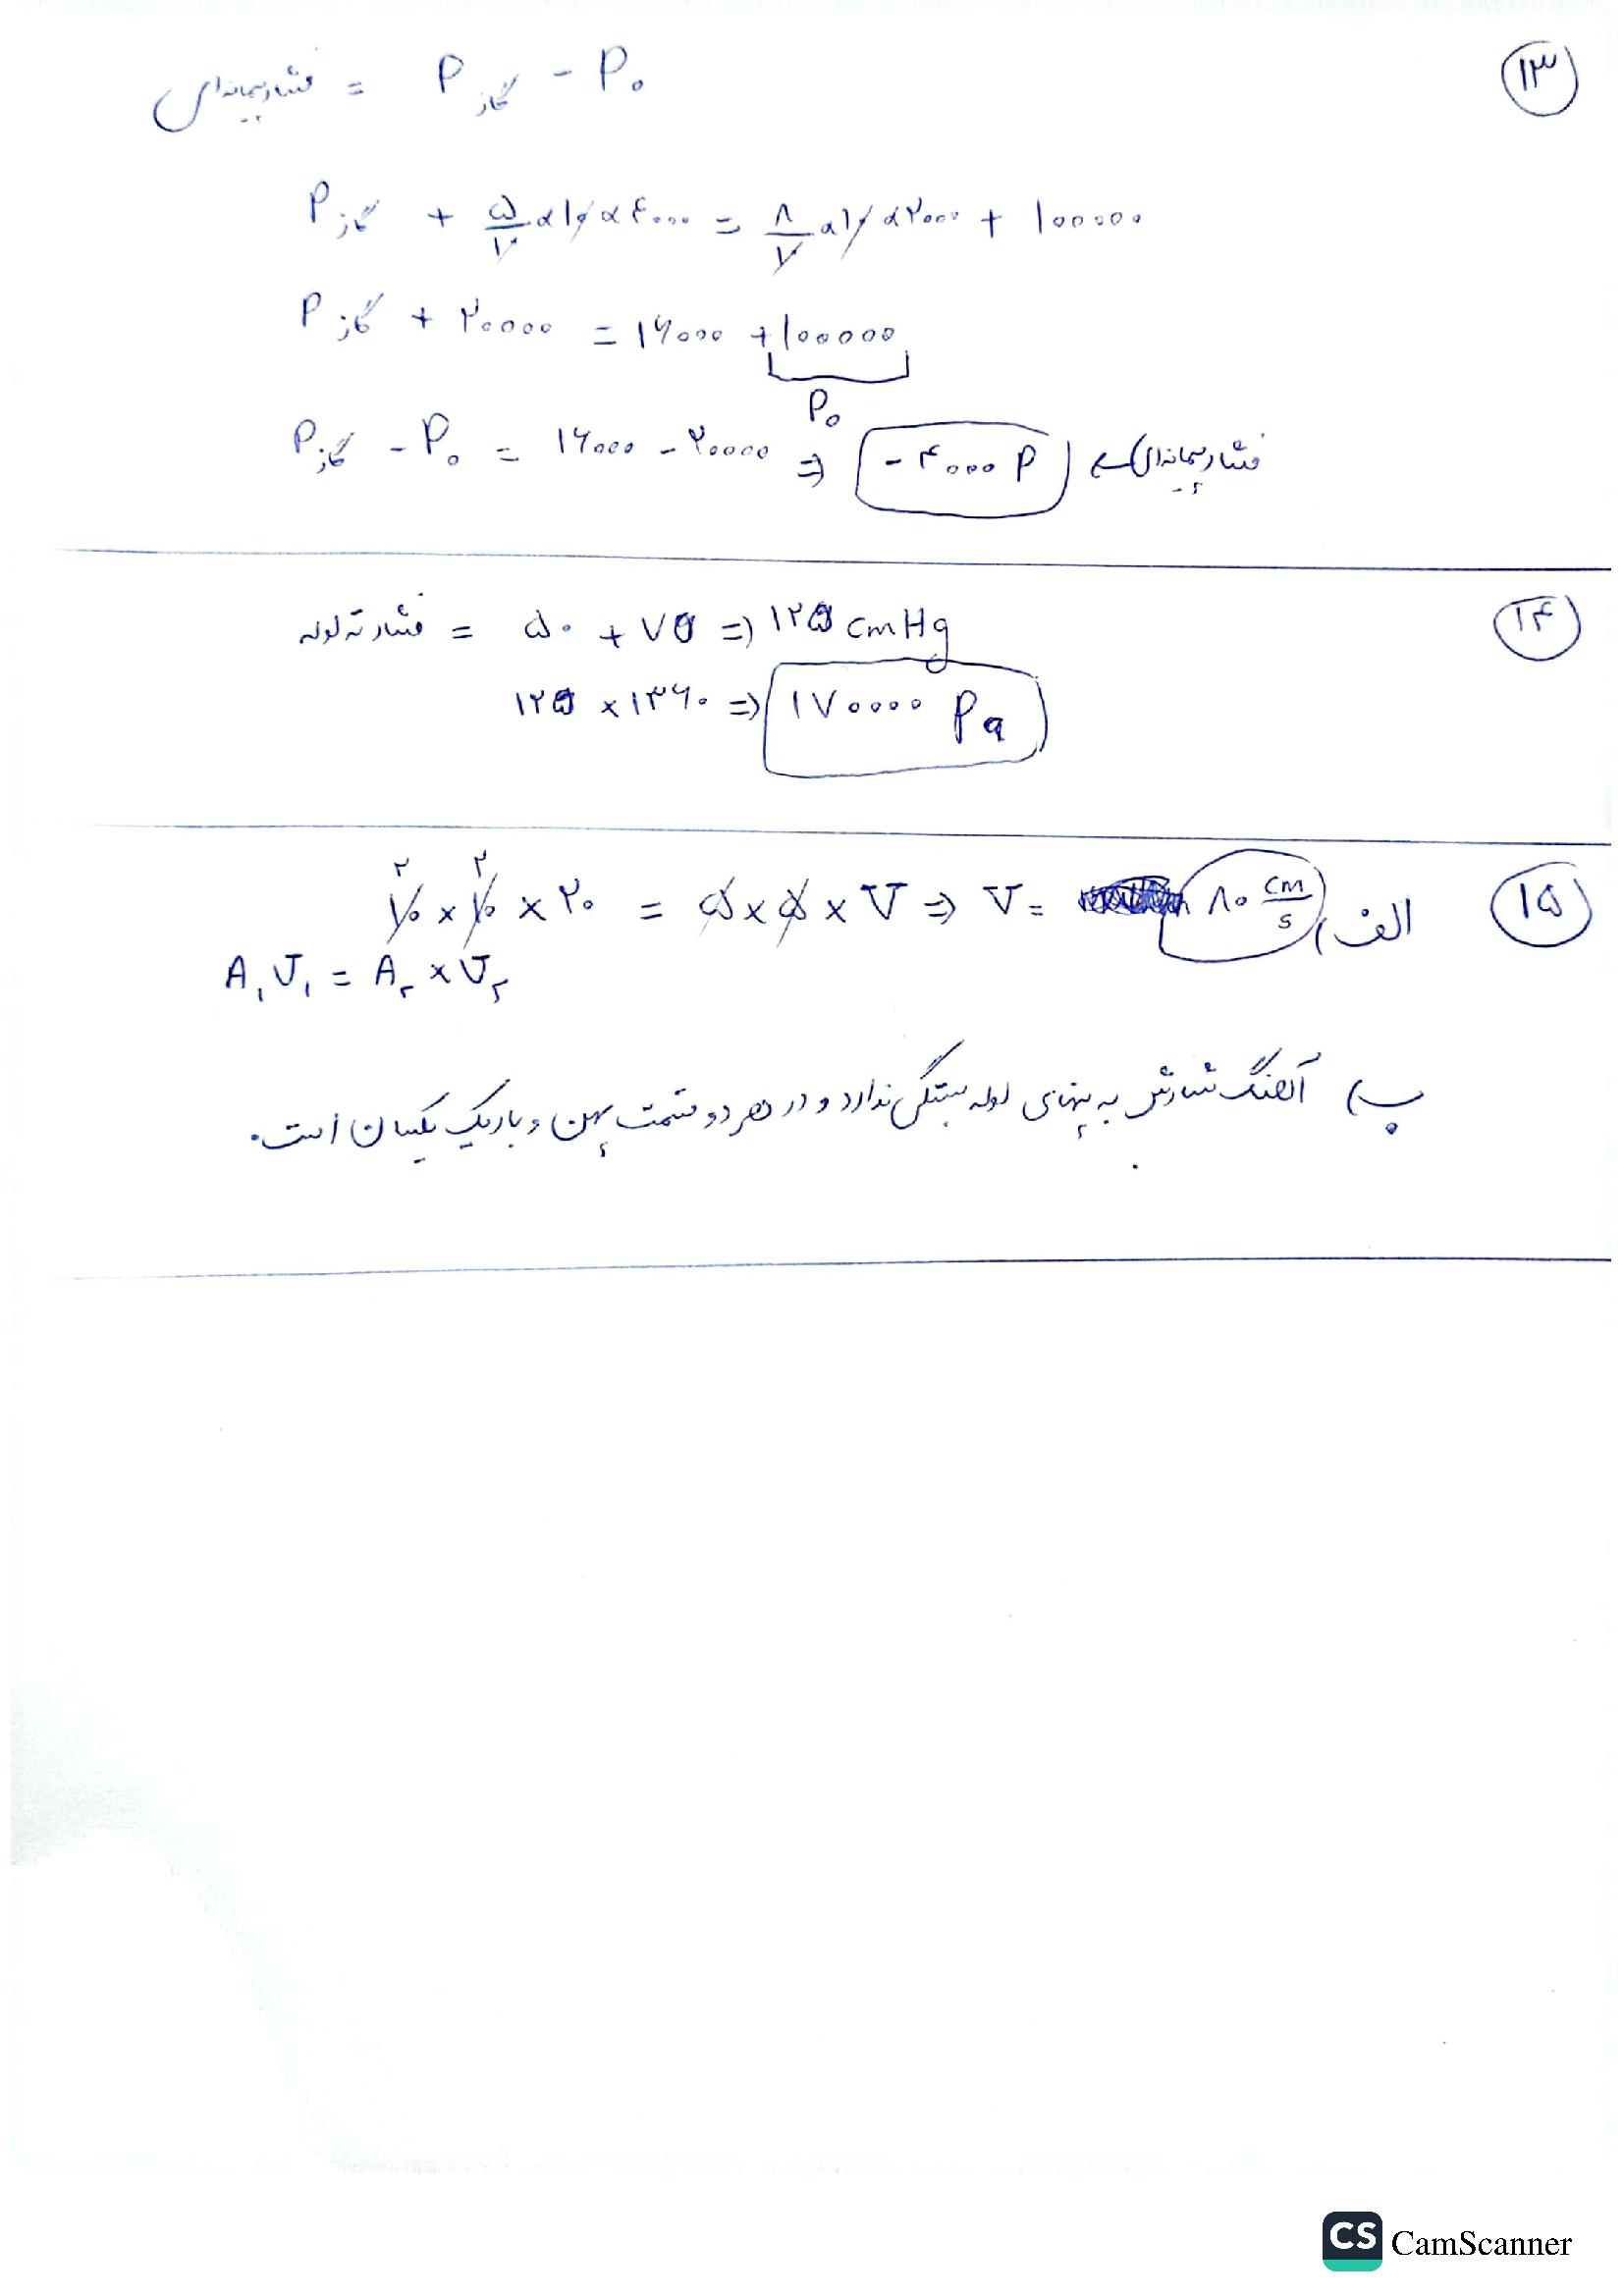 ۱۳
فشار پیمانه‌ای = P گاز - P₀
P گاز + ۵/۱۰ × ۱۰ × ۴۰۰۰ = ۸/۱۰ × ۱۰ × ۲۰۰۰ + ۱۰۰۰۰۰
P گاز + ۲۰۰۰۰ = ۱۶۰۰۰ + ۱۰۰۰۰۰
P₀
P گاز - P₀ = ۱۶۰۰۰ - ۲۰۰۰۰ ⇒ -۴۰۰۰ P ← فشار پیمانه‌ای
۱۴
فشار ته لوله = ۵۰ + ۷۵ ⇒ ۱۲۵ cmHg
۱۲۵ × ۱۳۶۰ ⇒ ۱۷۰۰۰۰ Pa
۱۵
الف) ۱۰ × ۱۰ × ۲۰ = ۵ × ۵ × V ⇒ V = ۸۰ cm/s
A₁V₁ = A₂ × V₂
پ) آهنگ شارش به پهنای لوله بستگی ندارد و در هر دو قسمت پهن و باریک یکسان است.
CS CamScanner